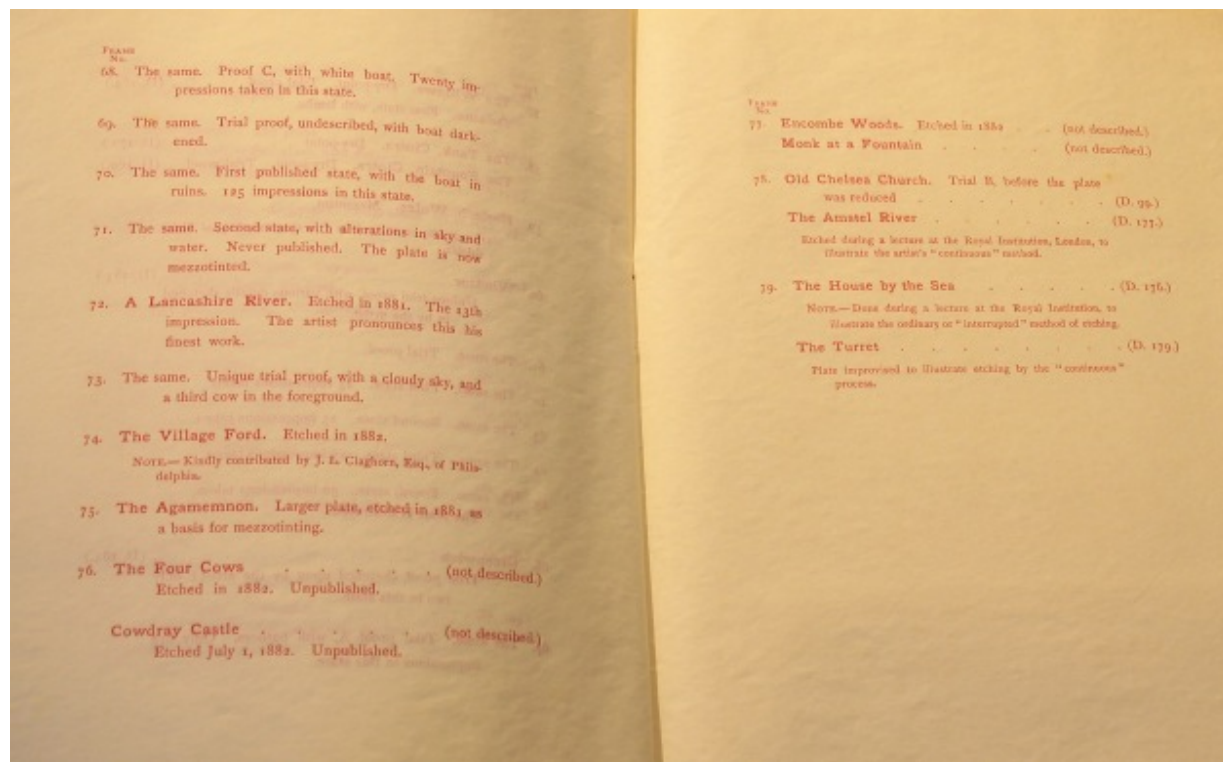 Frame
No.
68. The same. Proof C, with white boat. Twenty im-
pressions taken in this state.
69. The same. Trial proof, undescribed, with boat dark-
ened.
70. The same. First published state, with the boat in
ruins. 125 impressions in this state.
71. The same. Second state, with alterations in sky and
water. Never published. The plate is now
mezzotinted.
72. A Lancashire River. Etched in 1881. The 13th
impression. The artist pronounces this his
finest work.
73. The same. Unique trial proof, with a cloudy sky, and
a third cow in the foreground.
74. The Village Ford. Etched in 1882.
Note.—Kindly contributed by J. L. Claghorn, Esq., of Phila-
delphia.
75. The Agamemnon. Larger plate, etched in 1881 as
a basis for mezzotinting.
76. The Four Cows . . . . . (not described.)
Etched in 1882. Unpublished.
Cowdray Castle . . . . . (not described.)
Etched July 1, 1882. Unpublished.
Frame
No.
77. Encombe Woods. Etched in 1882 . . (not described.)
Monk at a Fountain . . . . (not described.)
78. Old Chelsea Church. Trial B, before the plate
was reduced . . . . . . . (D. 99.)
The Amstel River . . . . . . (D. 177.)
Etched during a lecture at the Royal Institution, London, to
illustrate the artist's "continuous" method.
79. The House by the Sea . . . . . (D. 176.)
Note.—Done during a lecture at the Royal Institution, to
illustrate the ordinary or "interrupted" method of etching.
The Turret . . . . . . . . (D. 179.)
Plate improvised to illustrate etching by the "continuous"
process.